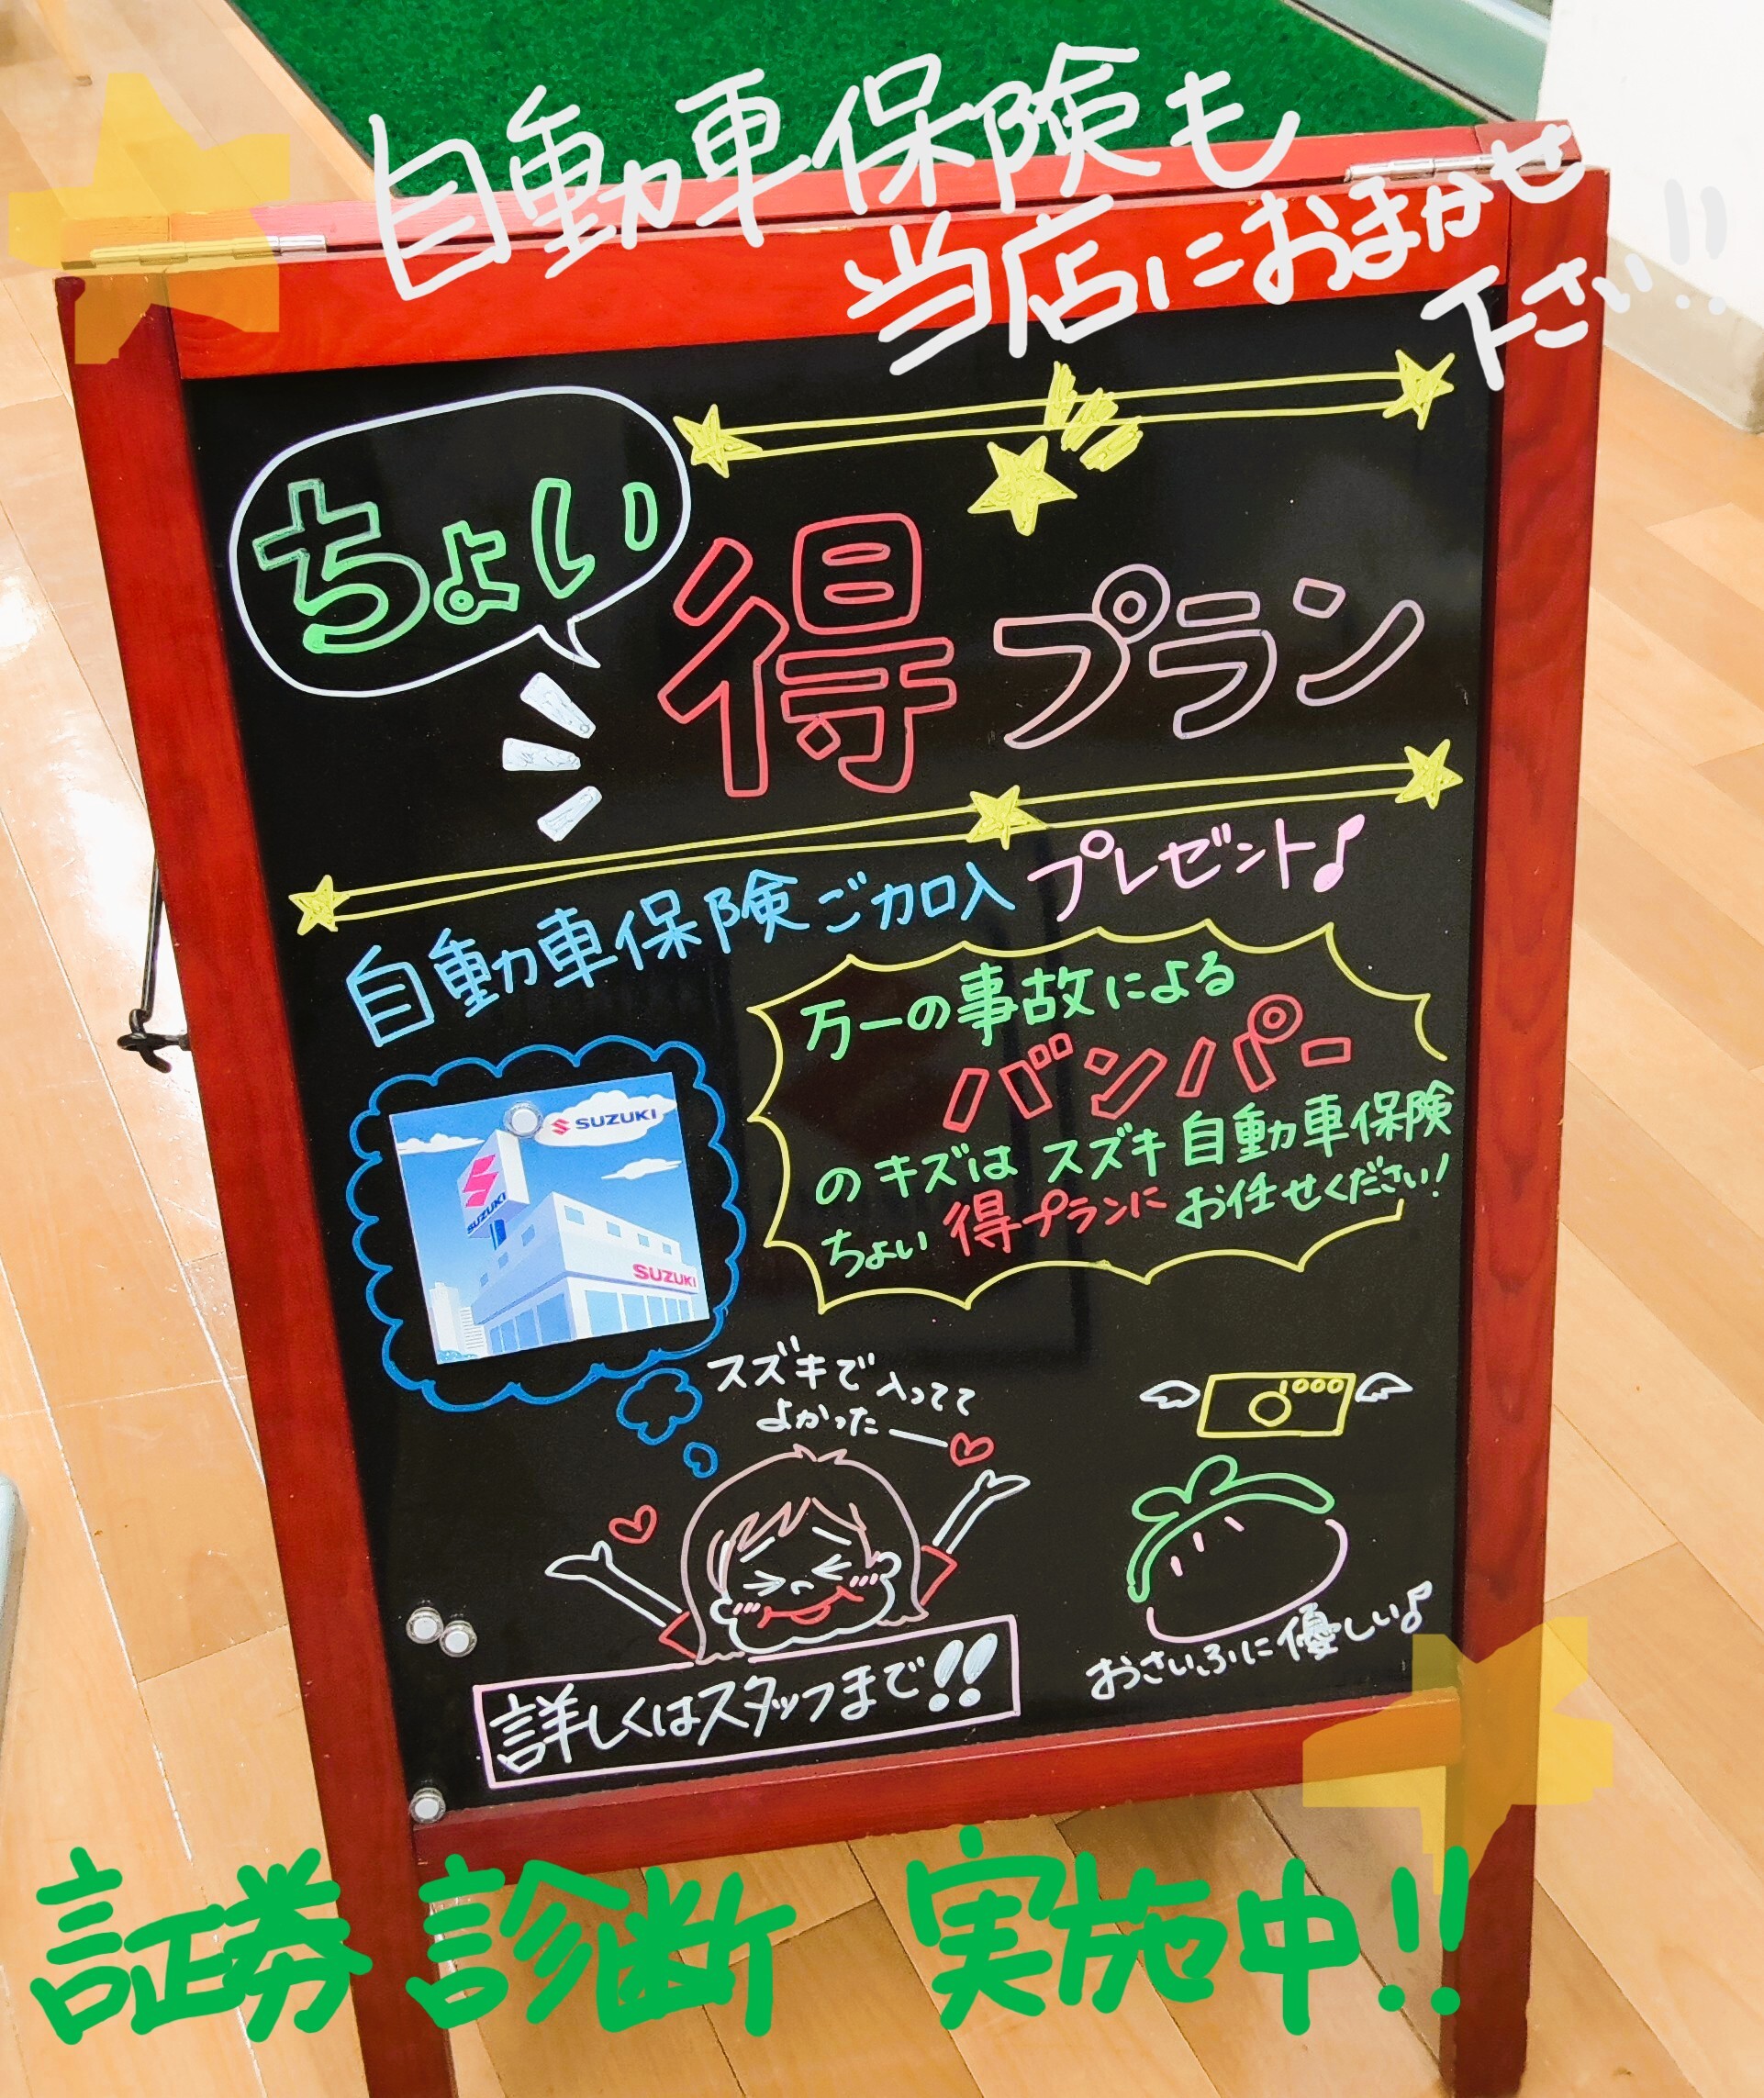 自動車保険も
当店におまかせ
下さい!!
ちょい
得プラン
自動車保険ご加入プレゼント♪
万一の事故による
バンパー
のキズはスズキ自動車保険
ちょい得プランにお任せください!
SUZUKI
SUZUKI
SUZUKI
スズキで入ってて
よかったー♡
1000
おさいふに優しい♪
詳しくはスタッフまで!!
証券診断 実施中!!